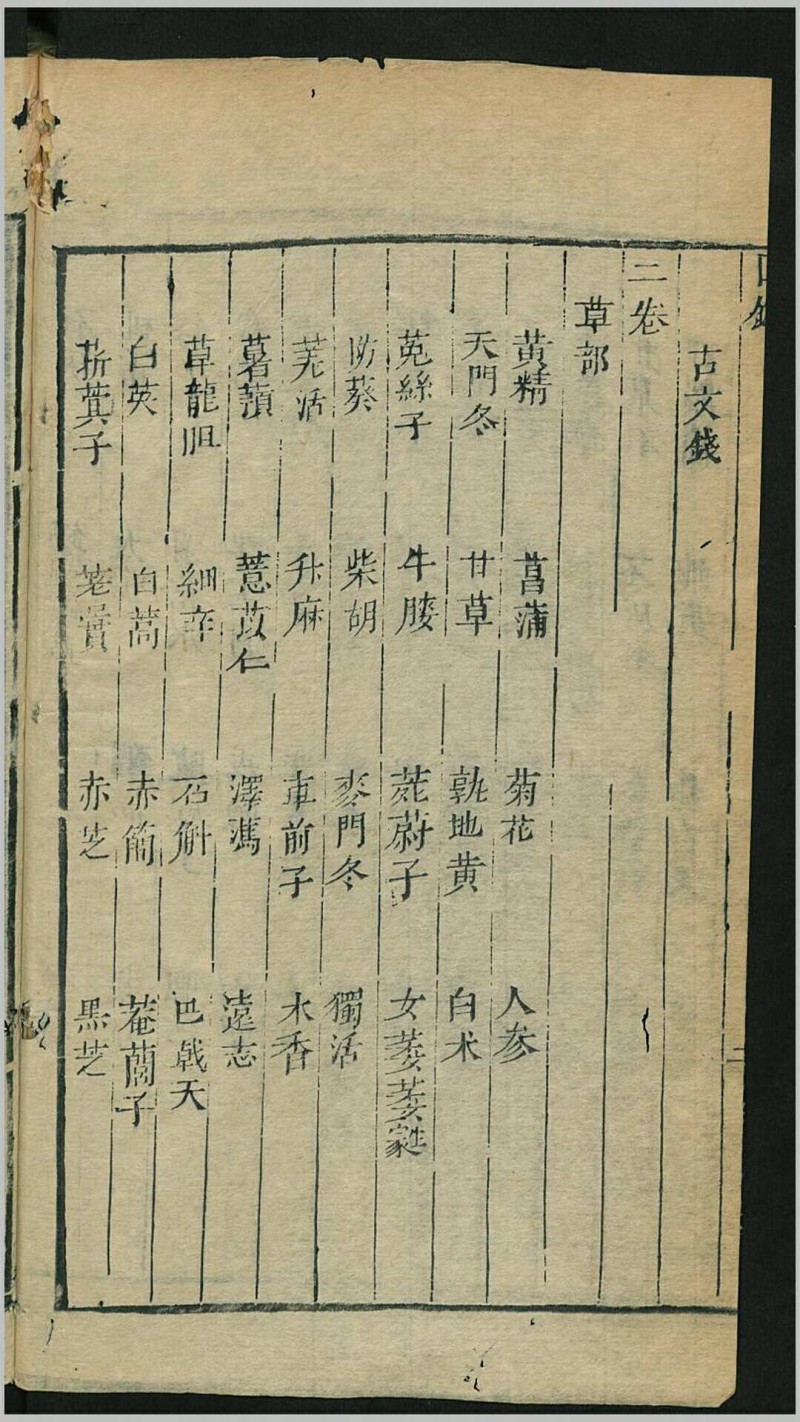 目錄
二
古文錢
二卷
草部
黄精 菖蒲 菊花 人参
天門冬 甘草 熟地黄 白术
菟絲子 牛膝 茺蔚子 女萎萎蕤
防葵 柴胡 麥門冬 獨活
羌活 升麻 車前子 木香
薯蕷 薏苡仁 澤瀉 遠志
草龍胆 細辛 石斛 巴戟天
白英 白蒿 赤箭 菴䕡子
菥蓂子 蓍實 赤芝 黒芝